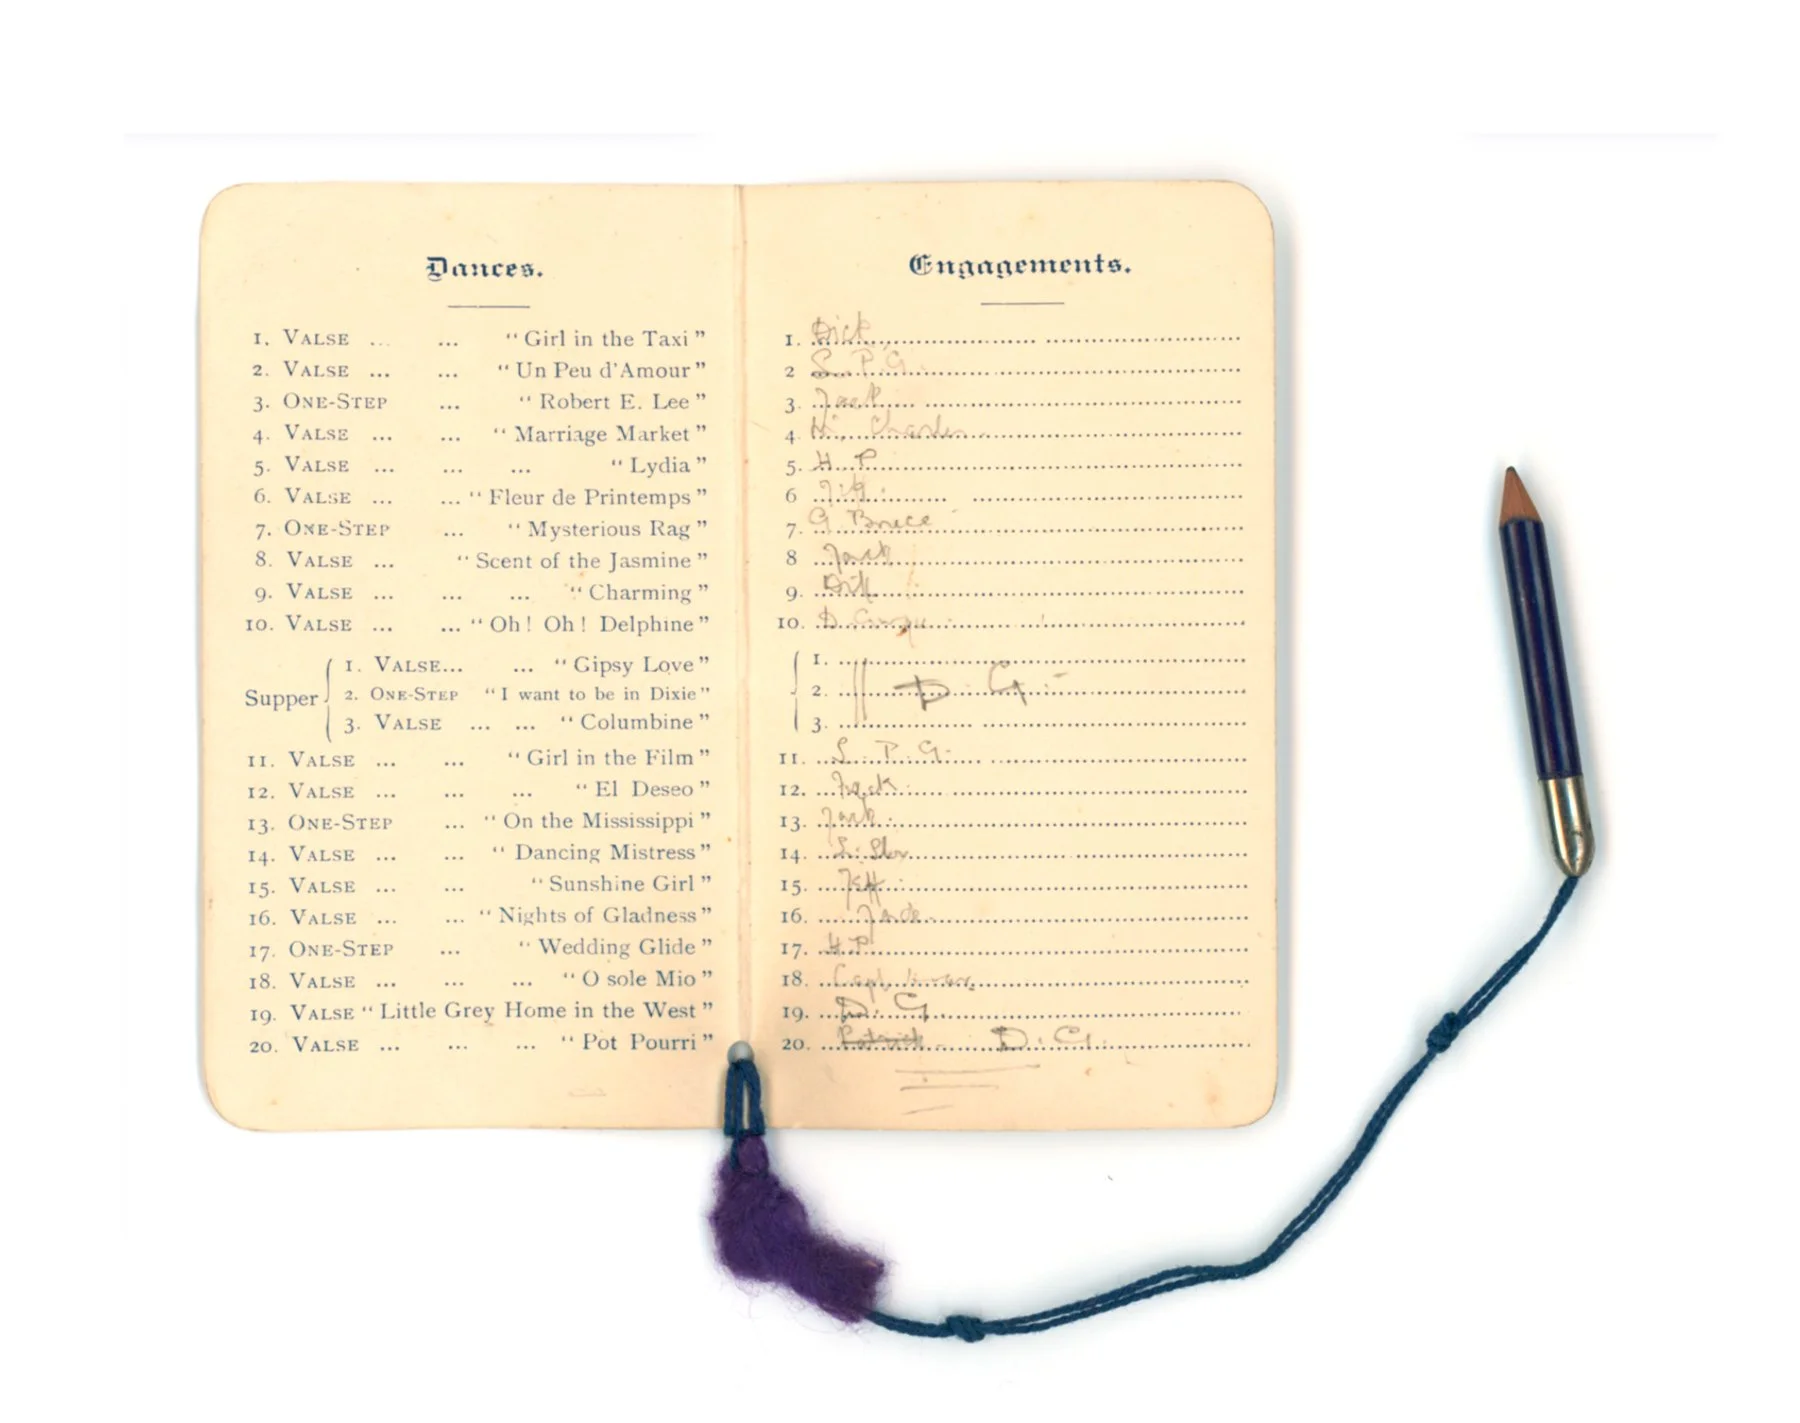 Dances.
1. VALSE ... ... “Girl in the Taxi”
2. VALSE ... ... “Un Peu d'Amour”
3. ONE-STEP ... “Robert E. Lee”
4. VALSE ... ... “Marriage Market”
5. VALSE ... ... ... “Lydia”
6. VALSE ... ... “Fleur de Printemps”
7. ONE-STEP ... “Mysterious Rag”
8. VALSE ... “Scent of the Jasmine”
9. VALSE ... ... ... “Charming”
10. VALSE ... ... “Oh! Oh! Delphine”
Supper
1. VALSE... ... “Gipsy Love”
2. ONE-STEP “I want to be in Dixie”
3. VALSE ... ... “Columbine”
11. VALSE ... ... “Girl in the Film”
12. VALSE ... ... ... “El Deseo”
13. ONE-STEP ... “On the Mississippi”
14. VALSE ... ... “Dancing Mistress”
15. VALSE ... ... “Sunshine Girl”
16. VALSE ... ... “Nights of Gladness”
17. ONE-STEP ... “Wedding Glide”
18. VALSE ... ... ... “O sole Mio”
19. VALSE “Little Grey Home in the West”
20. VALSE ... ... ... “Pot Pourri”
Engagements.
1. Dick
2 S. P. G.
3. Jack
4. Charles
5. H P
6
7. G Bruce
8 Jack
9. Dick
10. D
1.
2. D. G.
3.
11. S. P. G.
12. Jack
13. Jack
14.
15.
16.
17. H.P.
18. Capt
19. D. G
20. Patrick D. G.